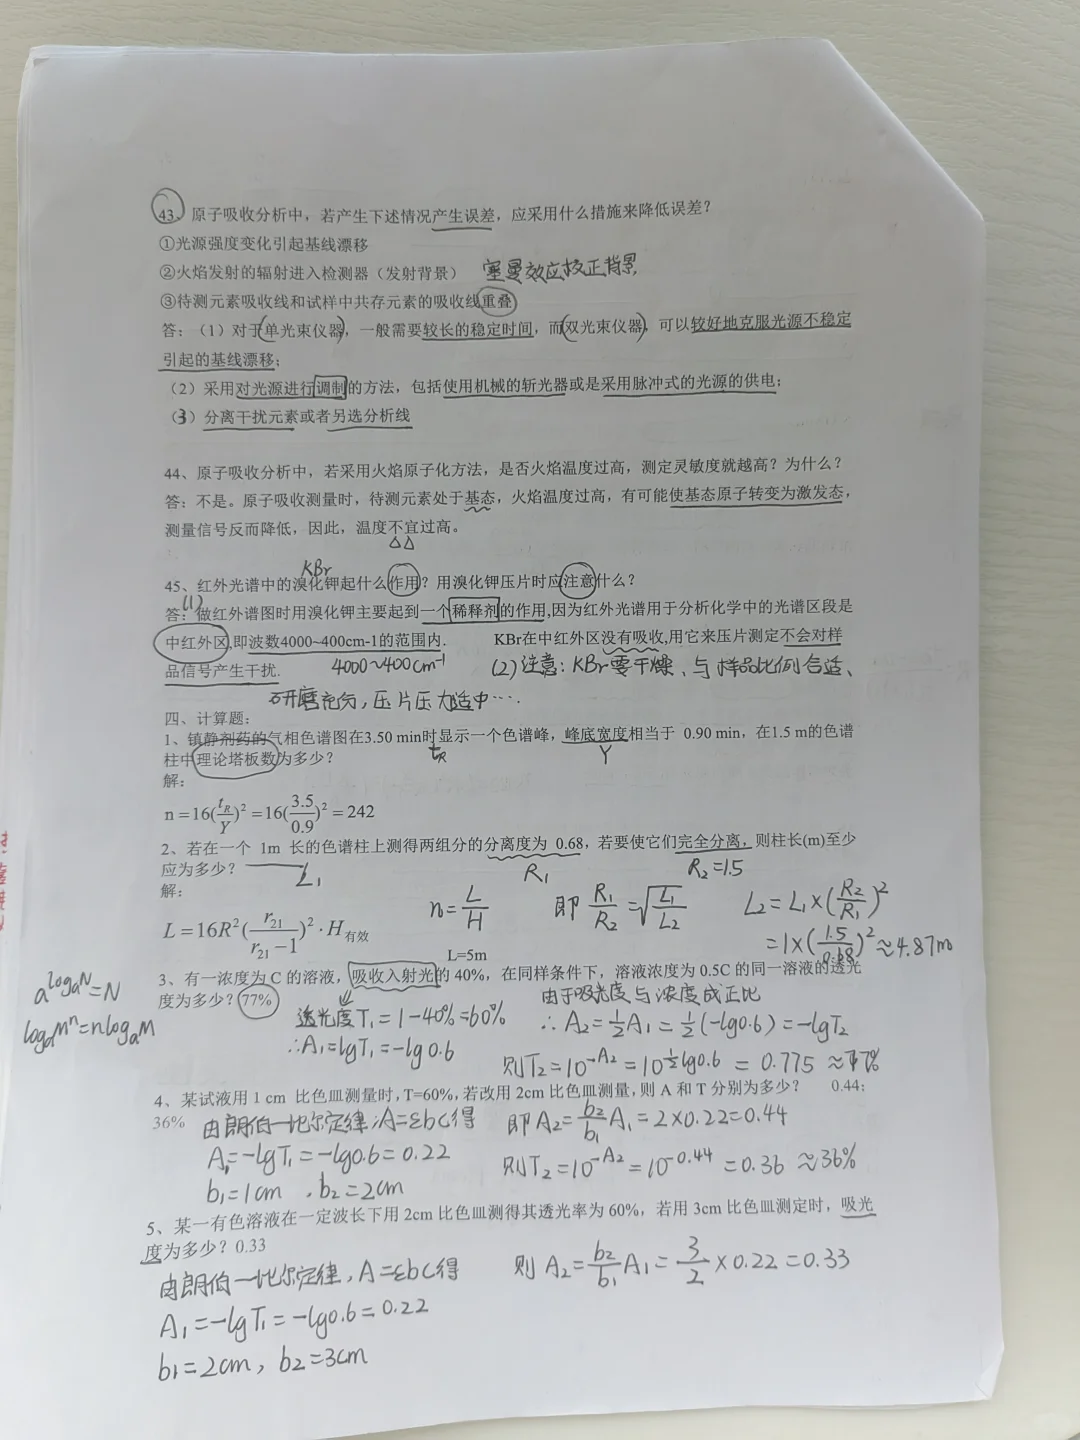 43、原子吸收分析中，若产生下述情况产生误差，应采用什么措施来降低误差？
①光源强度变化引起基线漂移
②火焰发射的辐射进入检测器（发射背景） 塞曼效应校正背景
③待测元素吸收线和试样中共存元素的吸收线重叠
答：（1）对于单光束仪器，一般需要较长的稳定时间，而双光束仪器，可以较好地克服光源不稳定
引起的基线漂移；
（2）采用对光源进行调制的方法，包括使用机械的斩光器或是采用脉冲式的光源的供电；
（3）分离干扰元素或者另选分析线
44、原子吸收分析中，若采用火焰原子化方法，是否火焰温度过高，测定灵敏度就越高？为什么？
答：不是。原子吸收测量时，待测元素处于基态，火焰温度过高，有可能使基态原子转变为激发态，
测量信号反而降低，因此，温度不宜过高。
KBr
45、红外光谱中的溴化钾起什么作用？用溴化钾压片时应注意什么？
(1)
答：做红外谱图时用溴化钾主要起到一个稀释剂的作用,因为红外光谱用于分析化学中的光谱区段是
中红外区,即波数4000~400cm-1的范围内. KBr在中红外区没有吸收,用它来压片测定不会对样
品信号产生干扰. 4000~400cm⁻¹ (2)注意：KBr要干燥、与样品比例合适、
研磨充分，压片压力适中…
四、计算题：
1、镇静剂药的气相色谱图在3.50 min时显示一个色谱峰，峰底宽度相当于 0.90 min，在1.5 m的色谱
tR Y
柱中理论塔板数为多少？
解：
n=16(tR/Y)²=16(3.5/0.9)²=242
2、若在一个 1m 长的色谱柱上测得两组分的分离度为 0.68，若要使它们完全分离，则柱长(m)至少
应为多少？ L₁ R₁ R₂=1.5
解：
n=L/H 即 R₁/R₂=√(L₁/L₂) L₂=L₁×(R₂/R₁)²
L=16R²(r₂₁/(r₂₁-1))²·H有效 =1×(1.5/0.68)²≈4.87m
L=5m
3、有一浓度为C的溶液，吸收入射光的40%，在同样条件下，溶液浓度为0.5C的同一溶液的透光
度为多少？77% 由于吸光度与浓度成正比
a^logₐN=N
logₐMⁿ=nlogₐM
透光度T₁=1-40%=60% ∴A₂=½A₁=½(-lg0.6)=-lgT₂
∴A₁=lgT₁=-lg0.6 则T₂=10^-A₂=10^½lg0.6=0.775≈77%
4、某试液用1 cm 比色皿测量时，T=60%，若改用2cm比色皿测量，则 A 和 T 分别为多少？ 0.44；
36% 由朗伯一比尔定律：A=εbC得 即A₂=b₂/b₁A₁=2×0.22=0.44
A₁=-lgT₁=-lg0.6=0.22 则T₂=10^-A₂=10^-0.44=0.36≈36%
b₁=1cm，b₂=2cm
5、某一有色溶液在一定波长下用2cm比色皿测得其透光率为60%，若用3cm比色皿测定时，吸光
度为多少？0.33
由朗伯一比尔定律，A=εbC得 则A₂=b₂/b₁A₁=3/2×0.22=0.33
A₁=-lgT₁=-lg0.6=0.22
b₁=2cm，b₂=3cm